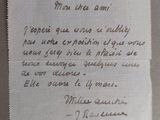 Mon cher ami
J'espère que vous n'oubliez
pas notre exposition et que vous
nous ferez le plaisir de
nous envoyer quelques unes
de vos œuvres.
Elle ouvre le 14 mars.
Milles amitiés
J